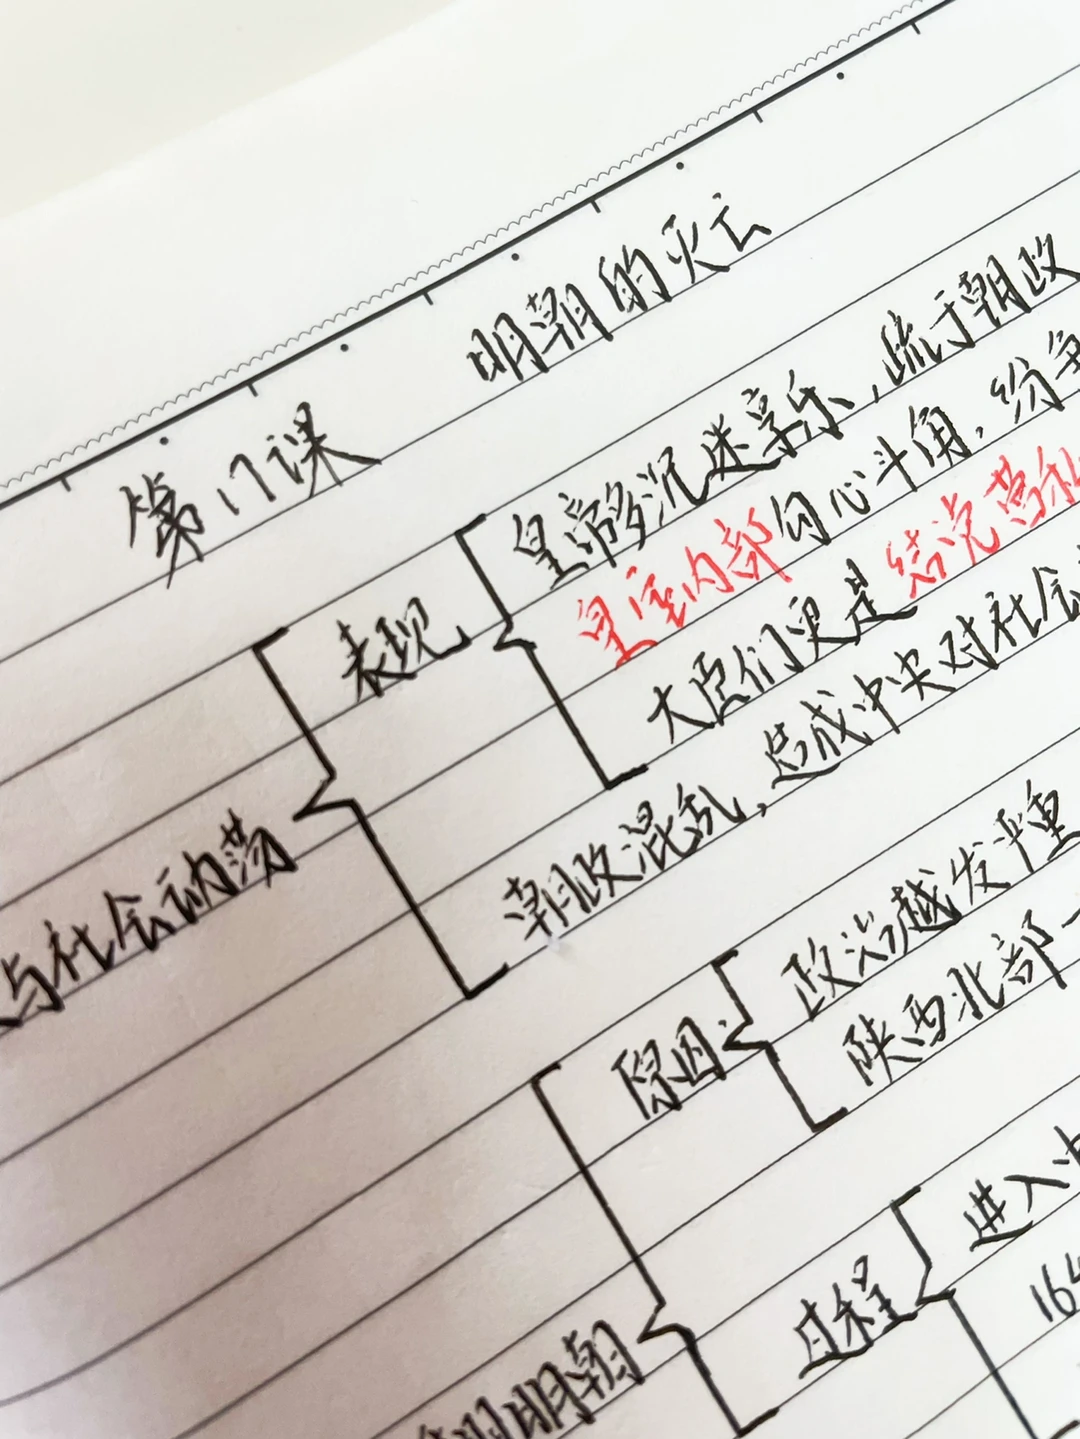 第17课 明朝的灭亡
皇帝多沉迷享乐，疏于朝政
表现 皇室内部勾心斗角，纷争
大臣们更是结党营私
与社会动荡 朝政混乱，造成中央对社会
政治越发严重
原因 陕西北部
进入
过程 164
翻明朝